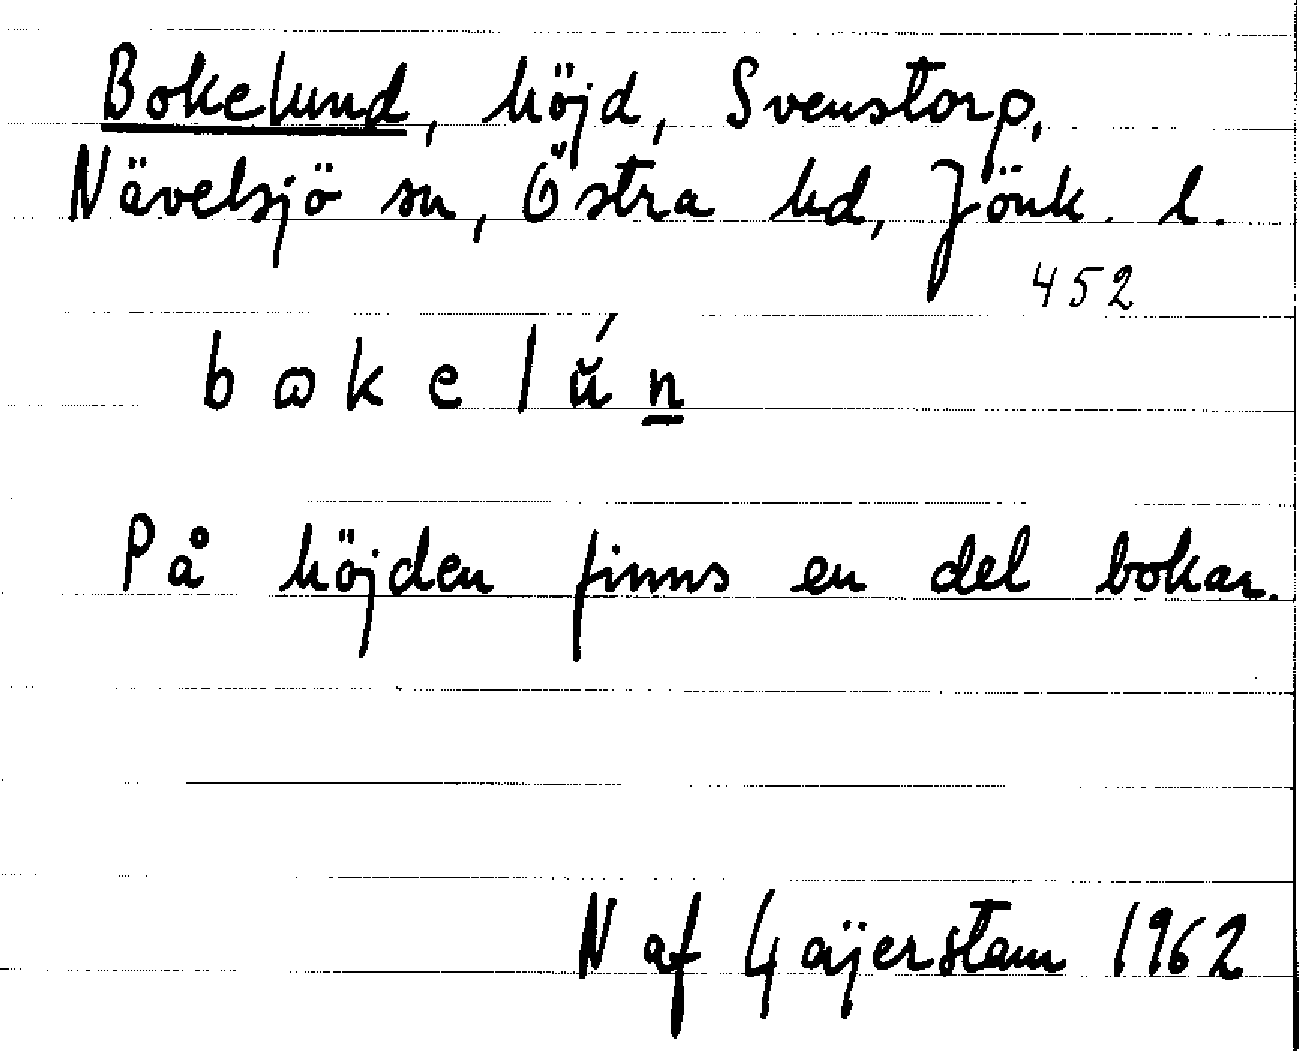 Bokelund, höjd, Svenstorp,
Nävelsjö sn, Östra hd, Jönk. l.
452
bɷkelún̲
På höjden finns en del bokar.
N af Gaÿerstam 1962